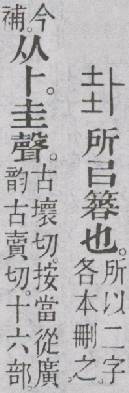 卦所㠯簭也。所以二字
各本刪之。
今
補。从卜。圭聲。古壞切。按當從廣
韵古賣切。十六部。